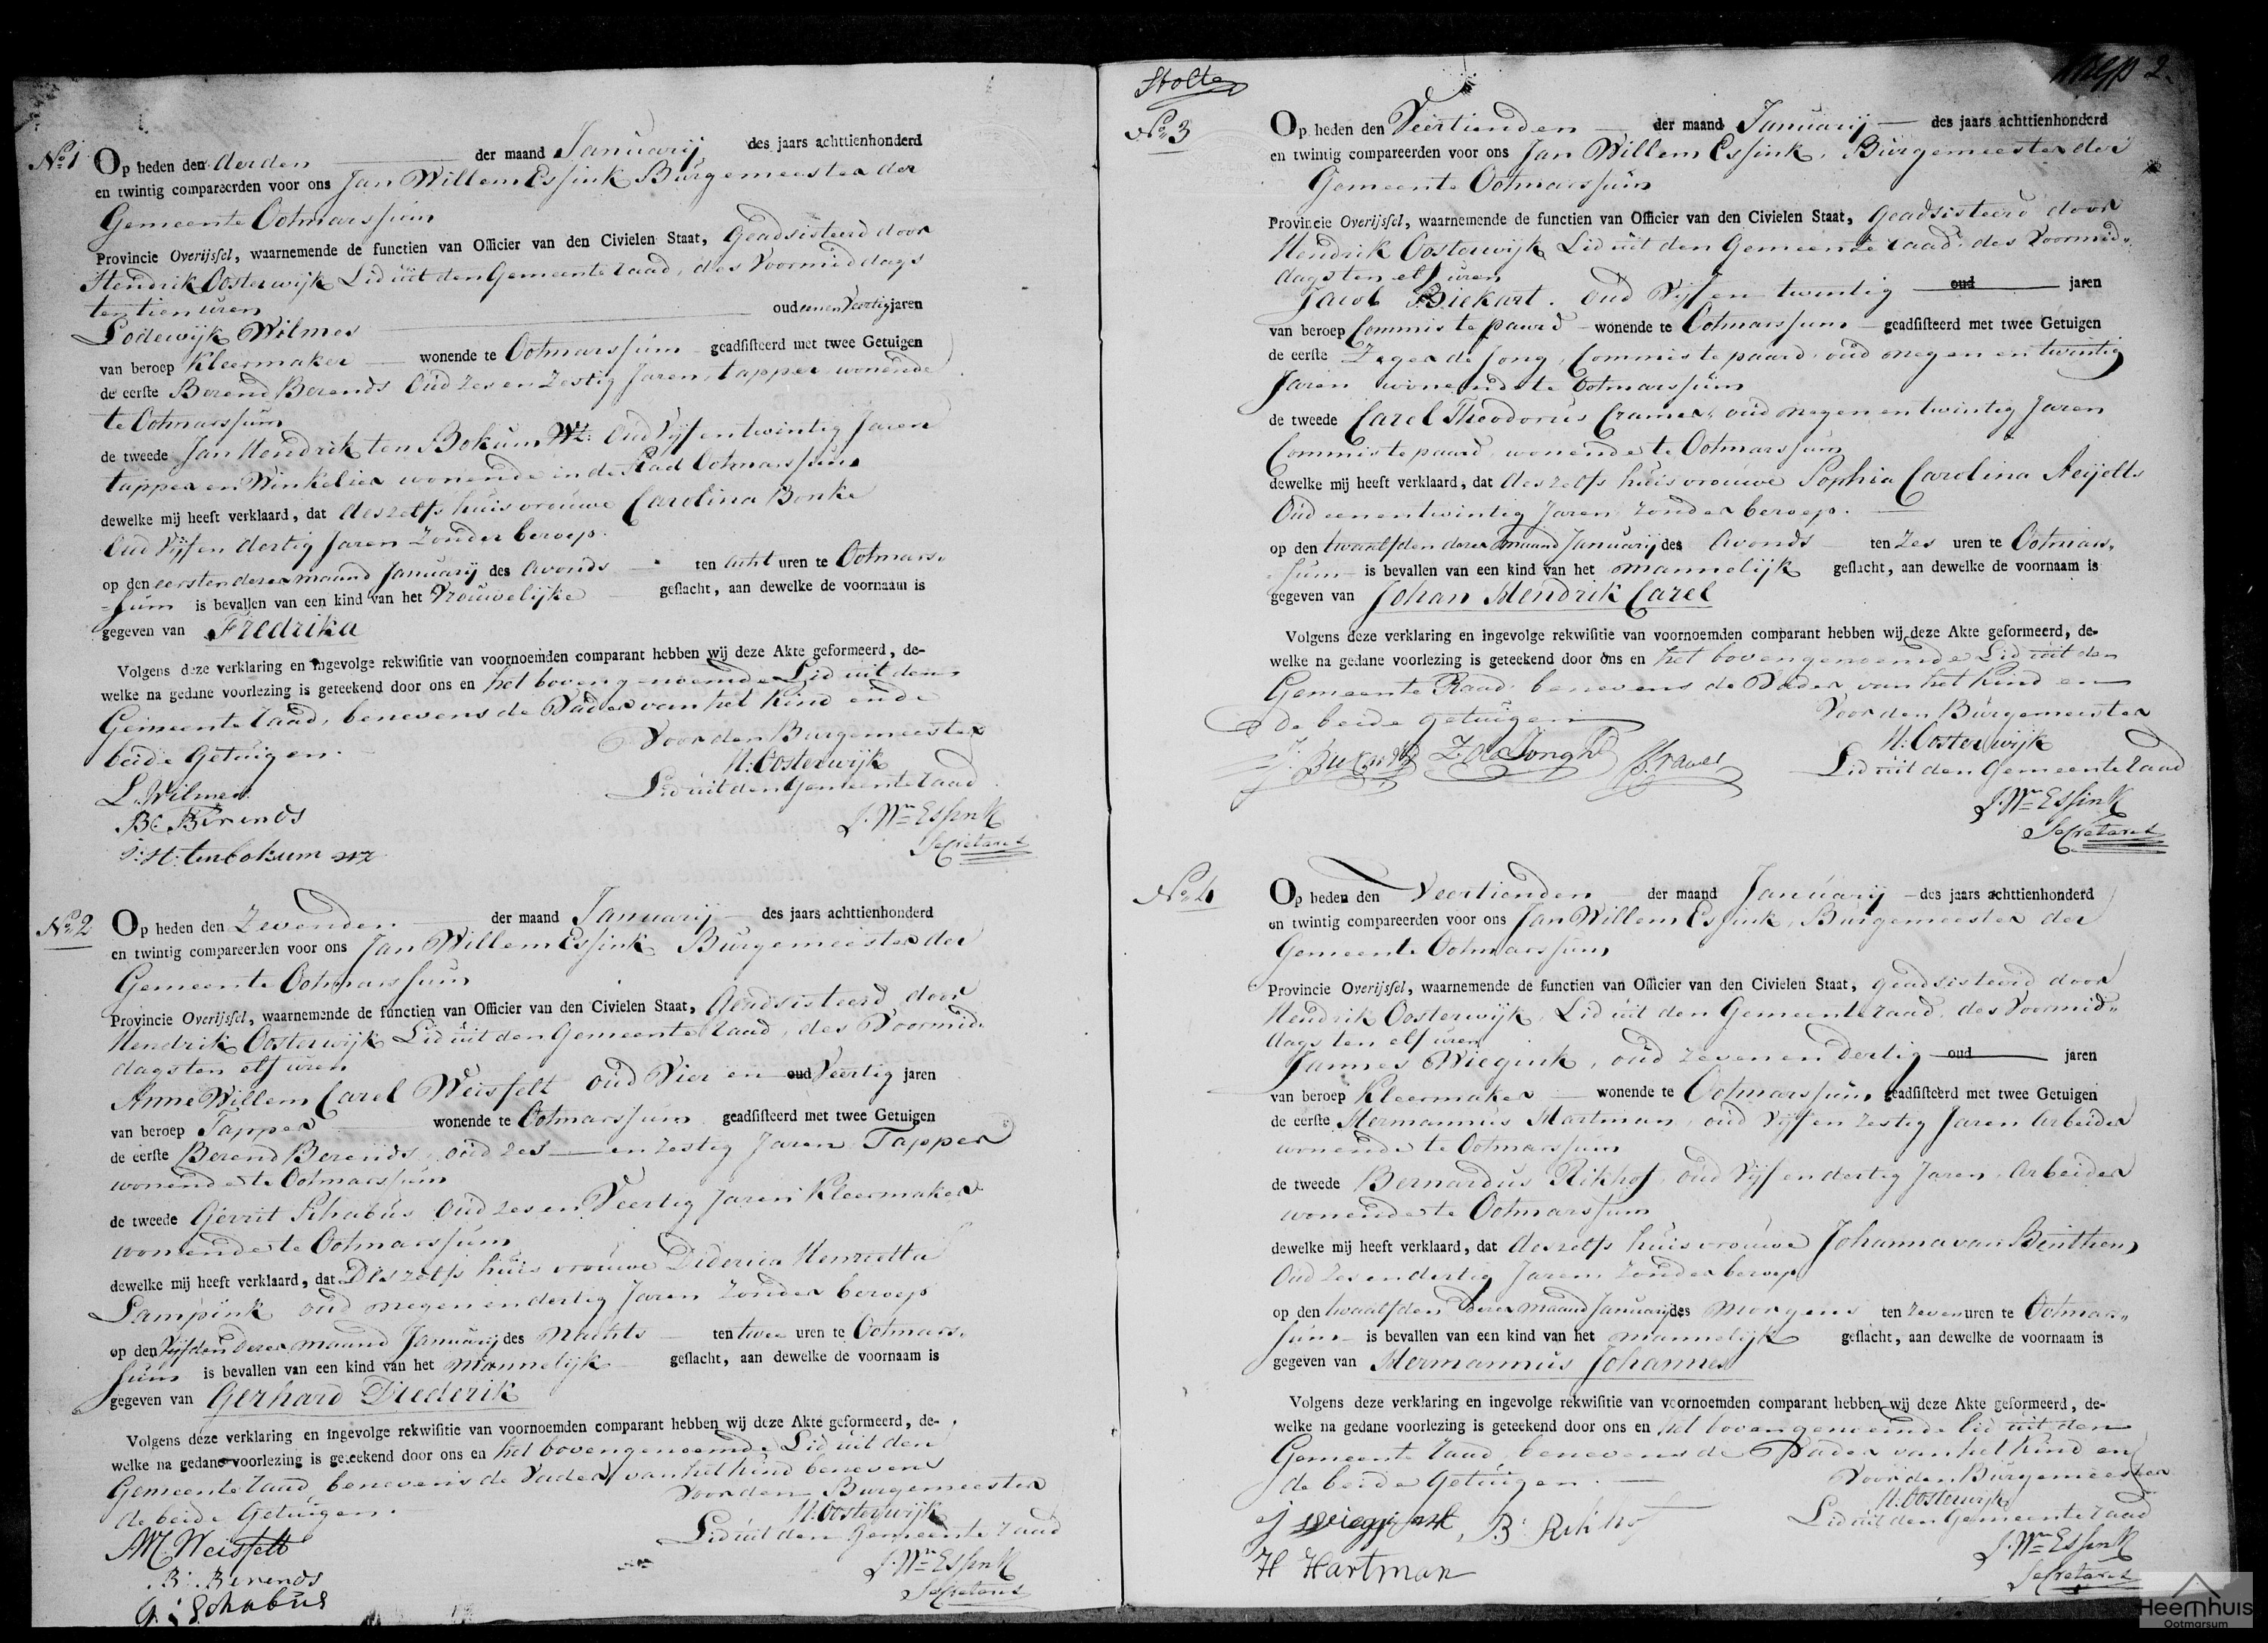 No. 1
Op heden den derden der maand Januarij des jaars achttienhonderd
en twintig compareerden voor ons Jan Willem Essink Burgemeester der
Gemeente Ootmarssum
Provincie Overijssel, waarnemende de functien van Officier van den Civielen Staat, Geadsisteerd door
Hendrik Oosterwijk Lid uit den Gemeente raad, des Voormiddags
ten tien uren
Lodewijk Wilmes oud een en Veertig jaren
van beroep Kleermaker wonende te Ootmarssum geadsisteerd met twee Getuigen
de eerste Berend Berends Oud Zes en Zestig Jaren, tapper wonende
te Ootmarssum
de tweede Jan Hendrik ten Bokum Wz: Oud Vijf en twintig Jaren
tapper en Winkelier wonende in de Stad Ootmarssum
dewelke mij heeft verklaard, dat deszelfs huisvrouwe Carolina Bonke
Oud Vijf en dertig Jaren Zonder beroep.
op den eersten dezer maand Januarij des Avonds ten Acht uren te Ootmars-
=sum is bevallen van een kind van het Vrouwelijke geslacht, aan dewelke de voornaam is
gegeven van Fredrika
Volgens deze verklaring en ingevolge rekwisitie van voornoemden comparant hebben wij deze Akte geformeerd, de-
welke na gedane voorlezing is geteekend door ons en het bovengenoemde Lid uit den
Gemeente raad, benevens de Vader van het Kind en de
beide Getuigen.
Voor den Burgemeester
H: Oosterwijk
Lid uit den Gemeente raad
L. Wilmes
B: Berends
J: H: tenbokum wz
J. Wm Essink
Secretaris
No. 2
Op heden den Zevenden der maand Januarij des jaars achttienhonderd
en twintig compareerden voor ons Jan Willem Essink Burgemeester der
Gemeente Ootmarssum
Provincie Overijssel, waarnemende de functien van Officier van den Civielen Staat, Geadsisteerd door
Hendrik Oosterwijk Lid uit den Gemeente raad, des Voormid-
dags ten elf uren
Anne Willem Carel Weisfelt oud Vier en oud Veertig jaren
van beroep Tapper wonende te Ootmarssum geadsisteerd met twee Getuigen
de eerste Berend Berends, oud zes en zestig Jaren Tapper
wonende te Ootmarssum
de tweede Gerrit Schabus Oud zes en Veertig Jaren Kleermaker
wonende te Ootmarssum
dewelke mij heeft verklaard, dat Deszelfs huisvrouwe Diderica Henrietta
Lampink oud negen en dertig Jaren Zonder beroep
op den Vijfden dezer maand Januarij des Nachts ten twee uren te Ootmars-
sum is bevallen van een kind van het Mannelijk geslacht, aan dewelke de voornaam is
gegeven van Gerhard Diederik
Volgens deze verklaring en ingevolge rekwisitie van voornoemden comparant hebben wij deze Akte geformeerd, de-
welke na gedane voorlezing is geteekend door ons en het bovengenoemde Lid uit den
Gemeente raad, benevens de Vader van het Kind benevens
de beide Getuigen.
Voor den Burgemeester
H: Oosterwijk
Lid uit den Gemeente raad
Weisfelt
B: Berends
G: Schabus
J. Wm Essink
Secretaris
Stolte
2.
No. 3
Op heden den Veertienden der maand Januarij des jaars achttienhonderd
en twintig compareerden voor ons Jan Willem Essink, Burgemeester der
Gemeente Ootmarssum
Provincie Overijssel, waarnemende de functien van Officier van den Civielen Staat, Geadsisteerd door
Hendrik Oosterwijk Lid uit den Gemeente raad, des Voormid-
dags ten elf uren
Jacob Biekart. oud Vijf en twintig oud jaren
van beroep Commis te paard wonende te Ootmarssum geadsisteerd met twee Getuigen
de eerste Zeger de Jong, Commis te paard, oud negen en twintig
Jaren wonende te Ootmarssum
de tweede Carel Theodorus Cramer, oud negen en twintig Jaren
Commis te paard, wonende te Ootmarssum
dewelke mij heeft verklaard, dat deszelfs huisvrouwe Sophia Carolina
Oud een en twintig Jaren Zonder beroep.
op den twaalfden dezer maand Januarij des Avonds ten Zes uren te Ootmars-
sum is bevallen van een kind van het mannelijk geslacht, aan dewelke de voornaam is
gegeven van Johan Hendrik Carel
Volgens deze verklaring en ingevolge rekwisitie van voornoemden comparant hebben wij deze Akte geformeerd, de-
welke na gedane voorlezing is geteekend door ons en het bovengenoemde Lid uit den
Gemeente Raad, benevens de Vader van het Kind en
de beide getuigen
Voor den Burgemeester
H: Oosterwijk
Lid uit den Gemeente raad
Z. de Jongh
J. Wm Essink
Secretaris
No. 4
Op heden den Veertienden der maand Januarij des jaars achttienhonderd
en twintig compareerden voor ons Jan Willem Essink, Burgemeester der
Gemeente Ootmarssum
Provincie Overijssel, waarnemende de functien van Officier van den Civielen Staat, geadsisteerd door
Hendrik Oosterwijk, Lid uit den Gemeente raad, des Voormid-
dags ten elf uren
Jannes Wiegink, oud zeven en dertig oud jaren
van beroep Kleermaker wonende te Ootmarssum geadsisteerd met twee Getuigen
de eerste Hermannus Hartman, oud Vijf en Zestig Jaren Arbeider
wonende te Ootmarssum
de tweede Bernardus Rikhof, oud Vijf en dertig Jaren, Arbeider
wonende te Ootmarssum
dewelke mij heeft verklaard, dat deszelfs huisvrouwe Johanna van Benthem
Oud Zes en dertig Jaren Zonder beroep
op den twaalfden dezer maand Januarij des Morgens ten zeven uren te Ootmar-
sum is bevallen van een kind van het mannelijk geslacht, aan dewelke de voornaam is
gegeven van Hermannus Johannes
Volgens deze verklaring en ingevolge rekwisitie van voornoemden comparant hebben wij deze Akte geformeerd, de-
welke na gedane voorlezing is geteekend door ons en het bovengenoemde lid uit den
Gemeente raad, benevens de Vader van het Kind en
de beide Getuigen.
Voor den Burgemeester
H: Oosterwijk
Lid uit den Gemeente raad
j wieggink, B: Rikhof
H Hartman
J. Wm Essink
Secretaris
Heemhuis
Ootmarsum